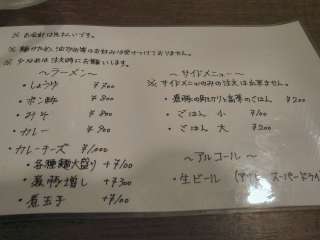 ※ お会計は先払いです。
※ 麺かため、油少な目等はお好みは受けつけておりません。
※ 少なめは注文時にお願いします。
～ラーメン～
・しょうゆ ¥700
・ポン酢 ¥800
・みそ ¥800
・カレー ¥900
・カレーチーズ ¥1,000
・各種麺大盛り +¥100
・激豚増し +¥300
・煮玉子 +¥100
～サイドメニュー～
※ サイドメニューのみの注文は出来ません。
・ごはん 小 ¥100
・ごはん 大 ¥200
～アルコール～
・生ビール (アサヒ スーパードライ